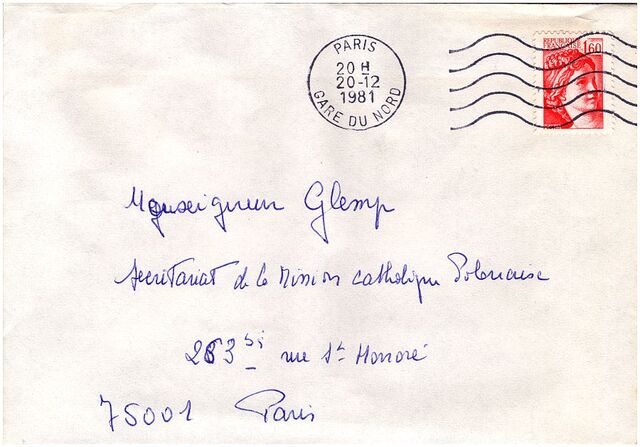 PARIS
20 H
20-12
1981
GARE DU NORD
REPUBLIQUE
FRANCAISE
1,60
Monseigneur Glemp
Secrétariat de la Mission catholique Polonaise
263 bis rue St Honoré
75001 Paris